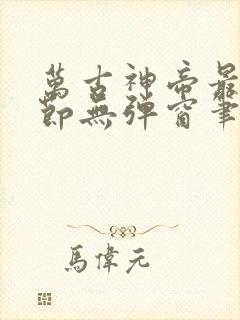 萬古神帝最
節無彈窗筆
馬偉元